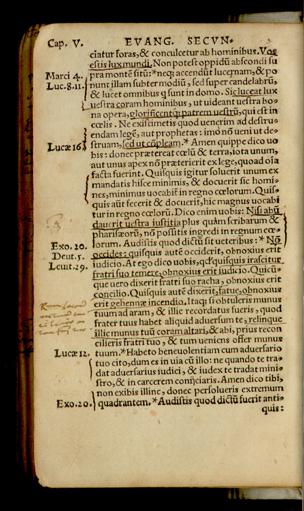 Cap. V. EVANG. SECVN.
ciatur foras, & conculcetur ab hominibus. Vos
estis lux mundi. Non potest oppidũ abscondi su
Marci 4. pra montẽ sitũ: * neq; accendũt lucernam, & po
Luc.8.11. nunt illam subter modiũ, sed super candelabrũ,
& lucet omnibus q sunt in domo. Sic luceat lux
uestra coram hominibus, ut uideant uestra bo-
na opera, glorificentq; patrem uestrũ, qui est in
cœlis. Ne existimetis quod uenerim ad destru-
endam legẽ, aut prophetas: imò nõ ueni ut de-
Lucæ 16. struam, sed ut cõpleam. * Amen quippe dico uo
bis: donec prætereat cœlũ & terra, iota unum,
aut unus apex nõ præterierit ex lege, quoad oĩa
facta fuerint. Quisquis igitur soluerit unum ex
mandatis hisce minimis, & docuerit sic homi-
nes, minimus uocabit̃ in regno cœlorum. Quis-
quis aũt fecerit & docuerit, hic magnus uocabi
tur in regno cœlorũ. Dico enim uobis: Nisi abũ
dauerit iustitia uestra plus quàm scribarum &
pharisæorũ, nõ positis ingredi in regnum cœ-
Exo. 20. lorum. Audistis quod dictũ sit ueteribus: * Nõ
Deut. 5. occides: quisquis autẽ occiderit, obnoxius erit
Leuit. 29. iudicio. At ego dico uobis, qđ quisquis irascitur
fratri suo temere, obnoxius erit iudicio. Quicũ-
que uero dixerit fratri suo racha, obnoxius erit
concilio. Quisquis autẽ dixerit, fatue, obnoxius
erit gehennæ incendio. Itaq; si obtuleris munus
tuum ad aram, & illic recordatus fueris, quod
frater tuus habet aliquid aduersum te, relinque
illic munus tuũ coram altari, & abi, prius recon
cilieris fratri tuo, & tum ueniens offer munus
Lucæ 12. tuum. * Habeto beneuolentiam cum aduersario
tuo cito, dum es in uia cũ illo: ne quando te tra-
dat aduersarius iudici, & iudex te tradat mini-
stro, & in carcerem conijciaris. Amen dico tibi,
non exibis illinc, donec persolueris extremum
Exo. 20. quadrantem. * Audistis quod dictũ fuerit anti-
quis: